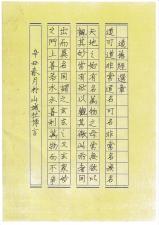 道德經選章
道可道非常道名可名非常名無名
天地之始有名萬物之母常無欲以
觀其妙常有欲以觀其徼此兩者同
出而異名同謂之玄玄之又玄衆妙
之門上善若水水善利萬物而不爭
辛丑春月於山城博言